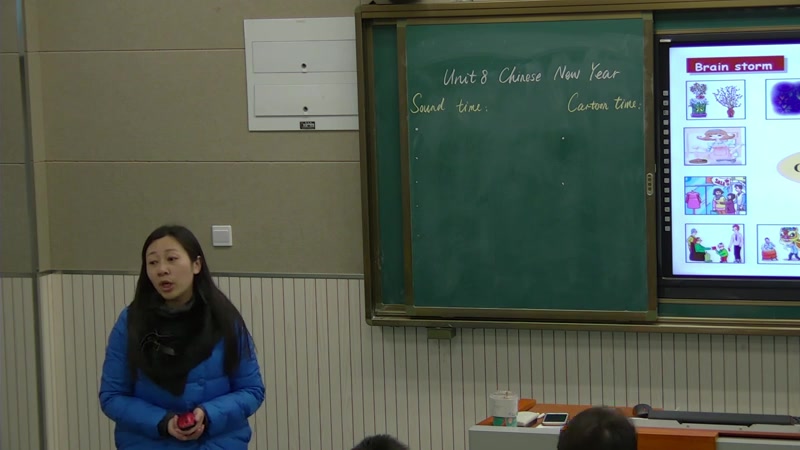 Unit 8 Chinese New Year
Sound time:
Cartoon time:
Brain storm